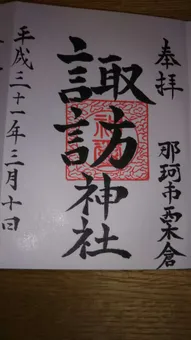 奉拝
那珂市粟倉
諏訪神社
平成三十一年三月十日